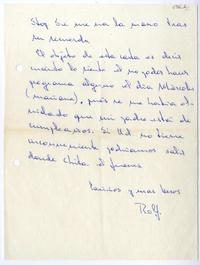 Stop Se me va la mano tras
su recuerdo
El objeto de esta carta es decir
cuanto lo siento el no poder hacer
programa alguno el día Miércoles
(mañana), pués se me había ol-
vidado que mi padre está de
cumpleaños. Si Ud. no tiene
inconveniente podríamos salir
donde Chita el Jueves
Cariños y mas besos
Rolf.